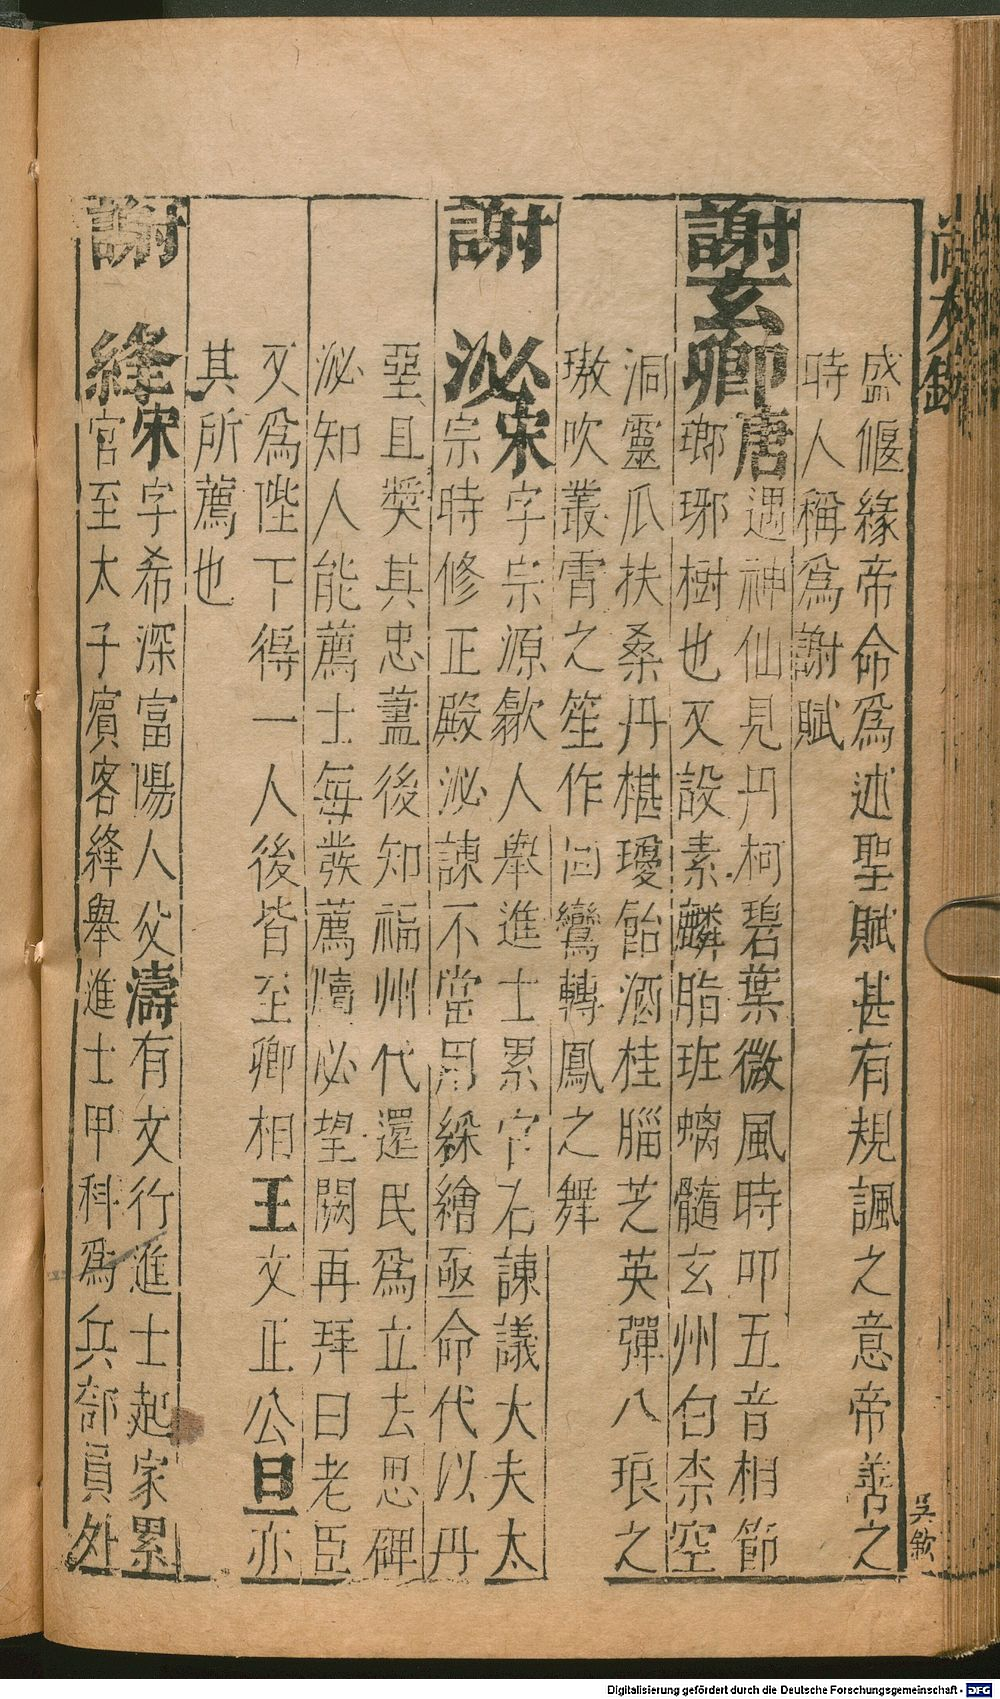 盛偃緣帝命爲述聖賦甚有規諷之意帝善之
時人稱爲謝賦
謝玄卿唐遇神仙見丹柯碧葉微風時叩五音相節
瑯琊樹也又設素麟脂班螭髓玄州白柰空
洞靈瓜扶桑丹椹瓊飴酒桂腦芝英彈八琅之
璈吹叢霄之笙作回鸞轉鳳之舞
謝泌宋字宗源歙人舉進士累官右諫議大夫太
宗時修正殿泌諫不當用綵繪亟命代以丹
堊且奬其忠藎後知福州代還民爲立去思碑
泌知人能薦士每發薦牘必望闕再拜曰老臣
又爲陛下得一人後皆至卿相王文正公旦亦
其所薦也
謝絳宋字希深富陽人父濤有文行進士起家累
官至太子賓客絳舉進士甲科爲兵部員外
吳欽
Digitalisierung gefördert durch die Deutsche Forschungsgemeinschaft - DFG